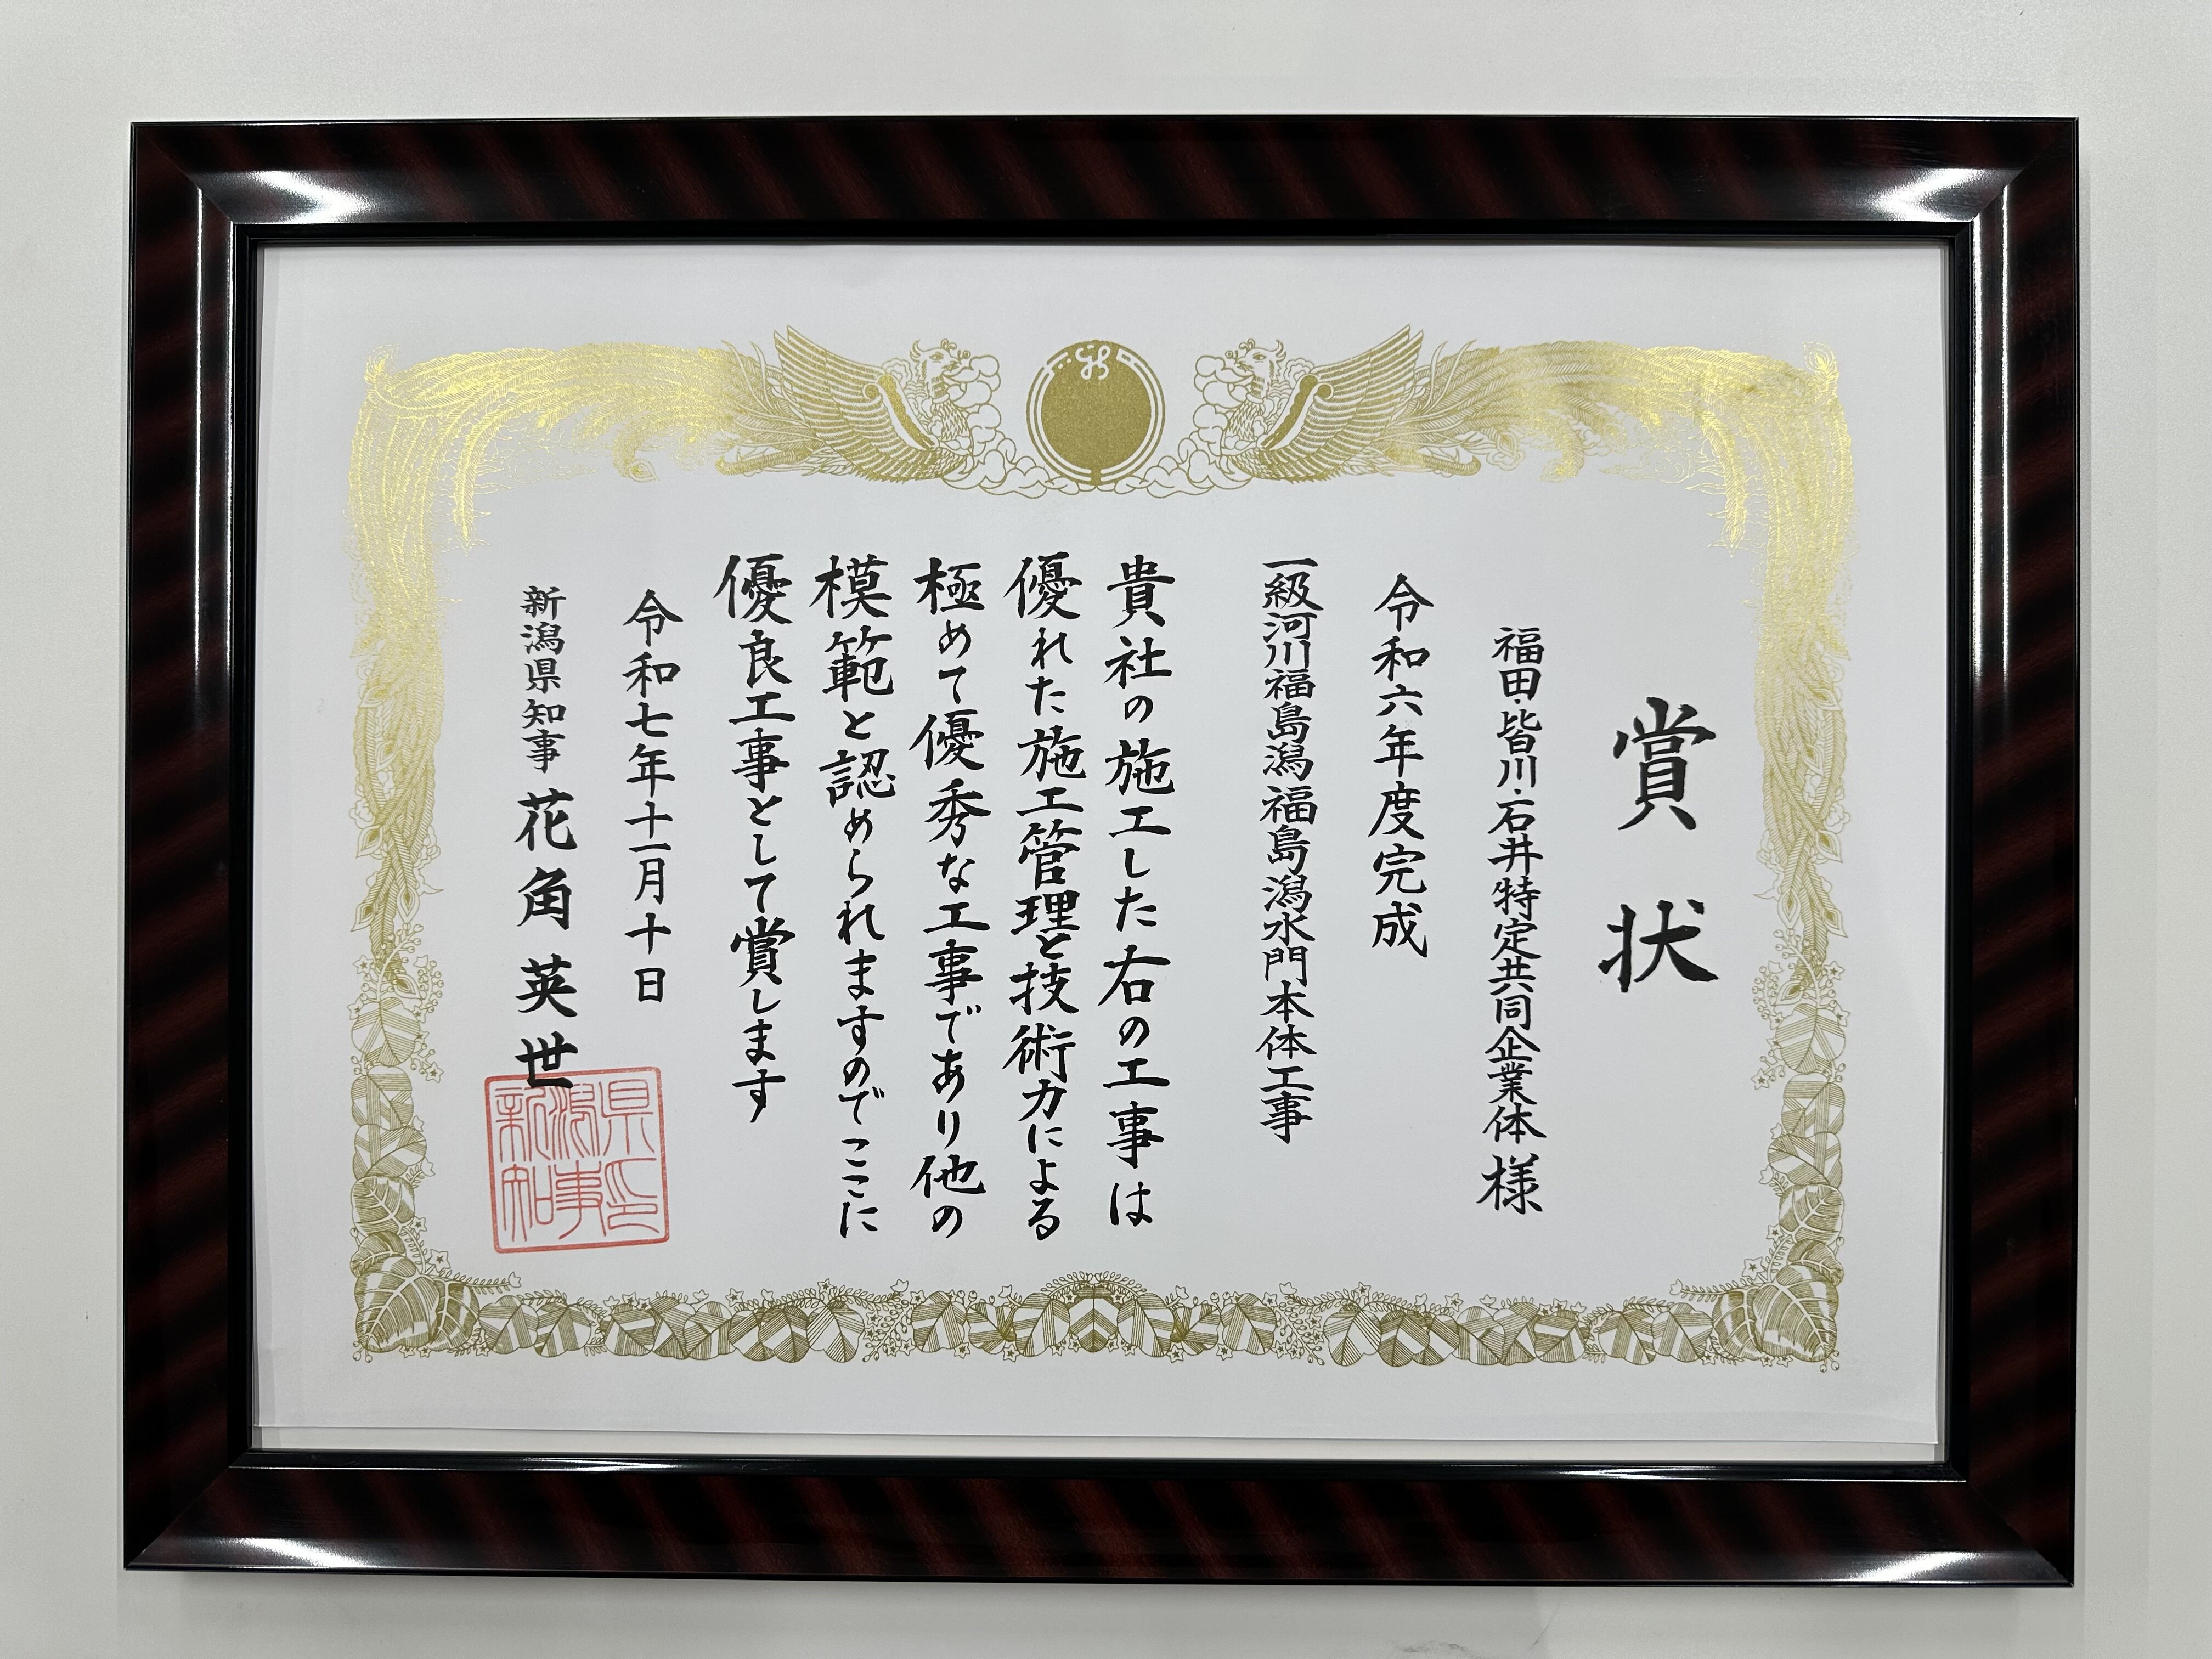 賞状
福田・皆川・石井特定共同企業体様
令和六年度完成
一級河川福島潟福島潟水門本体工事
貴社の施工した右の工事は
優れた施工管理と技術力による
極めて優秀な工事であり他の
模範と認められますのでここに
優良工事として賞します
令和七年十一月十日
新潟県知事 花角英世
新潟県知事印